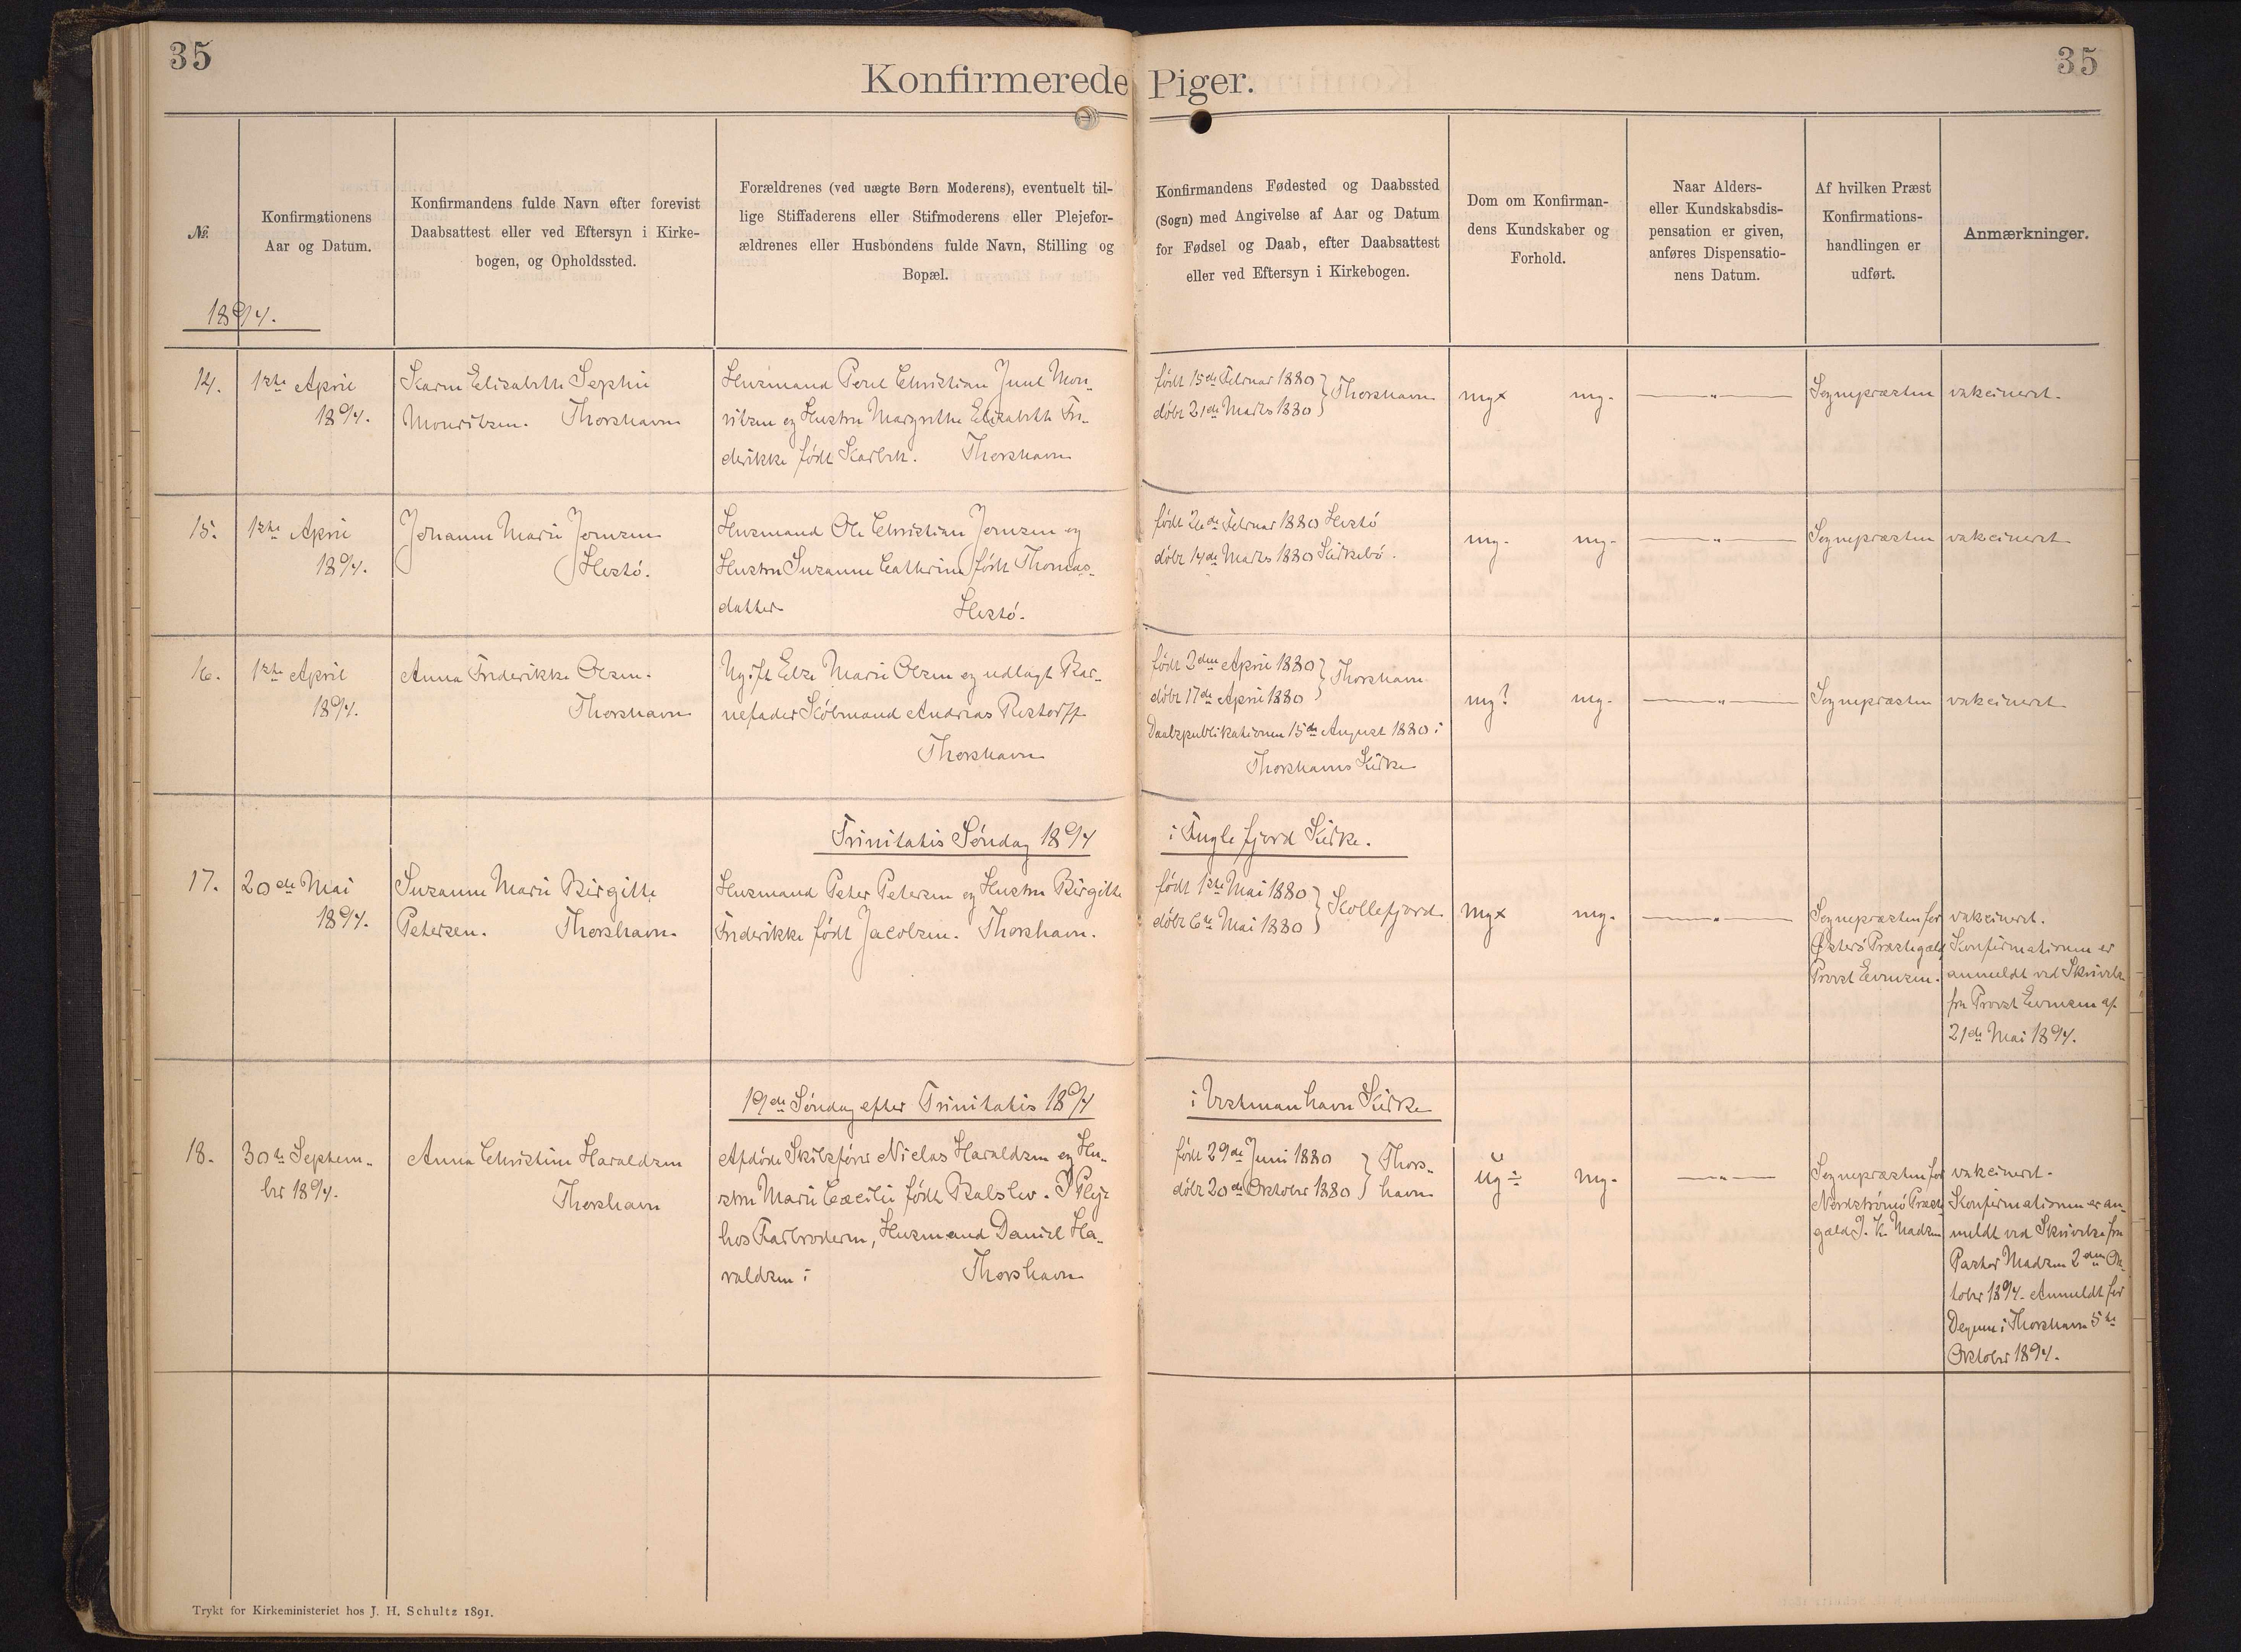 35
35
Konfirmerede Piger.
№
Konfirmationens
Aar og Datum.
Konfirmandens fulde Navn efter forevist
Daabsattest eller ved Eftersyn i Kirke-
bogen, og Opholdssted.
Forældrenes (ved uægte Børn Moderens), eventuelt til-
lige Stiffaderens eller Stifmoderens eller Plejefor-
ældrenes eller Husbondens fulde Navn, Stilling og
Bopæl.
Konfirmandens Fødested og Daabssted
(Sogn) med Angivelse af Aar og Datum
for Fødsel og Daab, efter Daabsattest
eller ved Eftersyn i Kirkebogen.
Dom om Konfirman-
dens Kundskaber og
Forhold.
Naar Alders-
eller Kundskabsdis-
pensation er given,
anføres Dispensatio-
nens Datum.
Af hvilken Præst
Konfirmations-
handlingen er
udført.
Anmærkninger.
1894.
14.
1ste April
1894.
Karen Elisabeth Sophie
Mouritsen. Thorshavn
Husmand Poul Christian Juul Mou-
ritsen og Hustru Margrethe Elisabeth Fre-
derikke født Karbek. Thorshavn
født 15de Februar 1880
døbt 21de Marts 1880 } Thorshavn
mg× mg-
— " —
Sognepræsten
vakcineret.
15.
1ste April
1894.
Johanne Marie Joensen
Hestø.
Husmand Ole Christian Joensen og
Hustru Susanne Cathrine født Thomas-
datter Hestø.
født 26de Februar 1880 Hestø
døbt 14de Marts 1880 Kirkebø.
mg- mg-
— " —
Sognepræsten
vakcineret
16.
1ste April
1894.
Anna Frederikke Olsen.
Thorshavn
Ugift Else Marie Olsen og udlagt Bar-
nefader Købmand Andreas Restorff
Thorshavn
født 2den April 1880
døbt 17de April 1880 } Thorshavn
Daabspublikationen 15de August 1880 i
Thorshavns Kirke
mg? mg-
— " —
Sognepræsten
vakcineret
Trinitatis Søndag 1894 i Fuglefjord Kirke.
17.
20de Mai
1894.
Susanne Marie Birgitte
Petersen. Thorshavn.
Husmand Peter Petersen og Hustru Birgitte
Frederikke født Jacobsen. Thorshavn.
født 1ste Mai 1880
døbt 6te Mai 1880 } Kollefjord
mg× mg-
— " —
Sognepræsten for
Østerø Præstegæld,
Provst Evensen.
vakcineret.
Konfirmationen er
anmeldt ved Skrivelse
fra Provst Evensen af
21de Mai 1894.
19de Søndag efter Trinitatis 1894 i Vestmanhavn Kirke
18.
30te Septem-
ber 1894.
Anna Christine Haraldsen
Thorshavn
Afdøde Skibsfører Niclas Haraldsen og Hu-
stru Marie Cæcilie født Balslev. I Pleje
hos Farbroderen, Husmand Daniel Ha-
raldsen i Thorshavn
født 29de Juni 1880
døbt 20de Oktober 1880 } Thors-
havn
ug÷ mg-
— " —
Sognepræsten for
Nordstrømø Præste-
gæld J. K. Madsen
vakcineret.
Konfirmationen er an-
meldt ved Skrivelse fra
Pastor Madsen 2den Ok-
tober 1894. Anmeldt for
Degnen i Thorshavn 5te
Oktober 1894.
Trykt for Kirkeministeriet hos J. H. Schultz 1891.